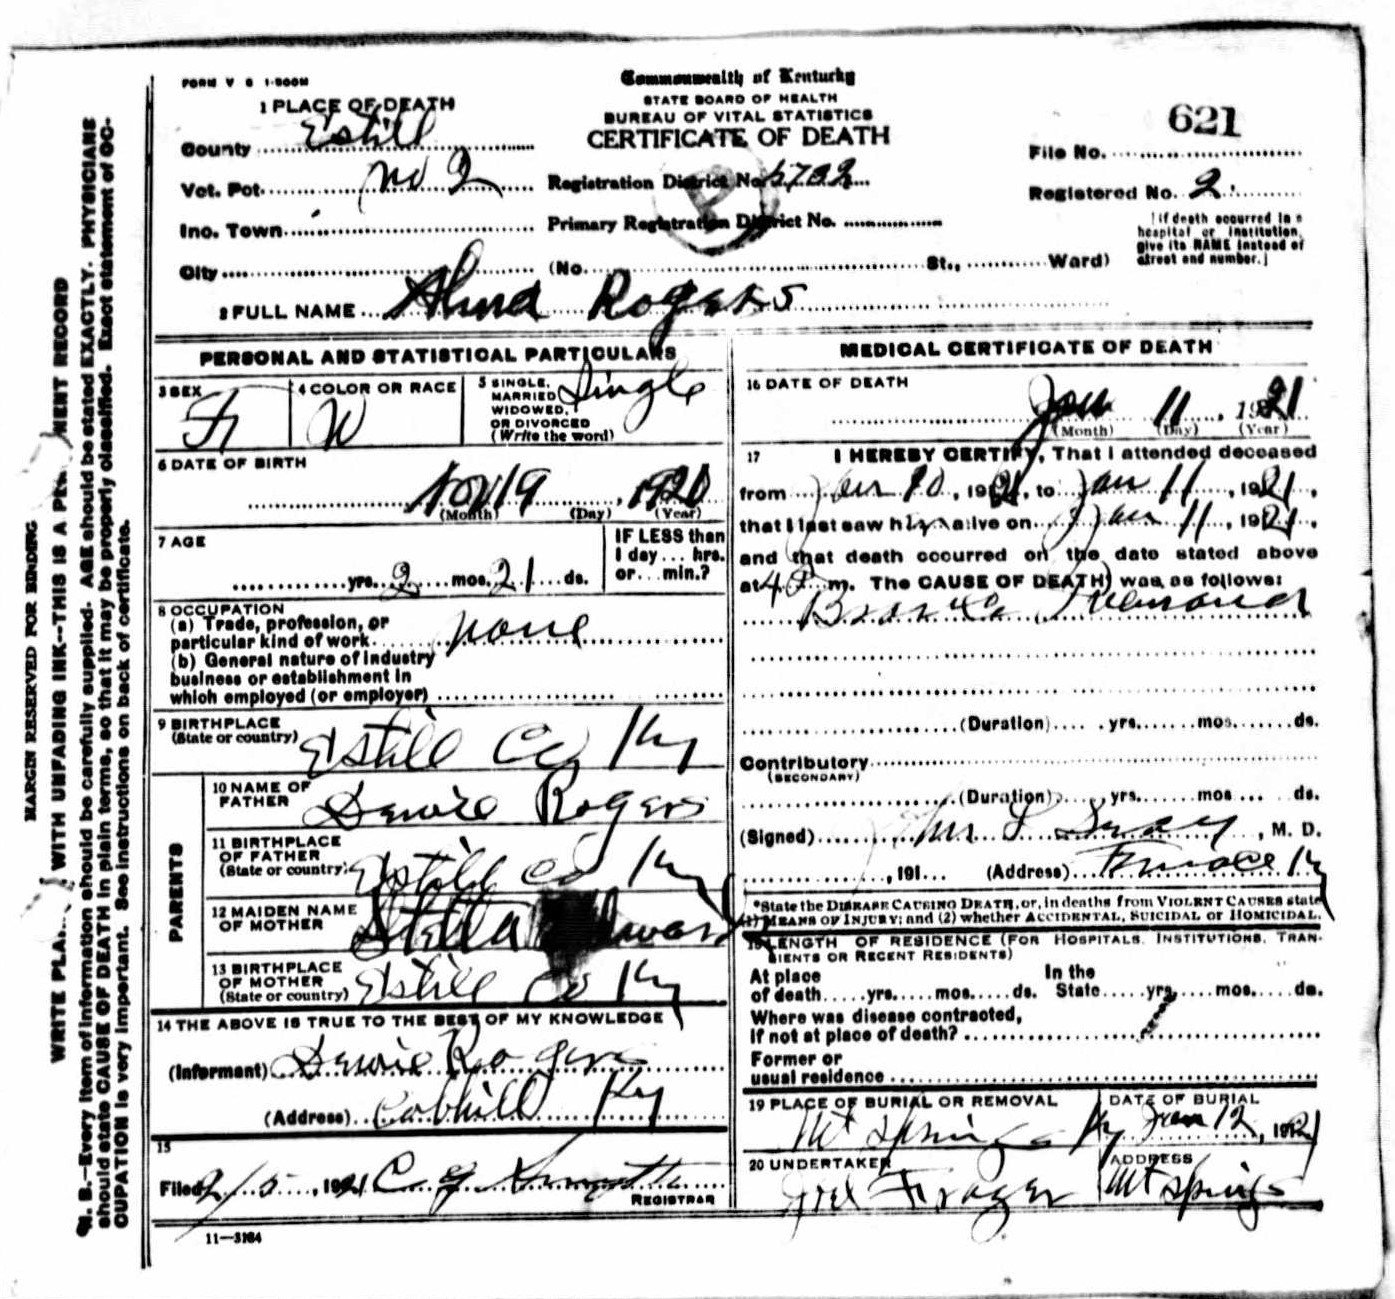 FORM V S 1-500M
Commonwealth of Kentucky
STATE BOARD OF HEALTH
BUREAU OF VITAL STATISTICS
CERTIFICATE OF DEATH
621
1 PLACE OF DEATH
County Estill
Vot. Pot. No 2
Registration District No. 5702
File No.
Registered No. 2
Inc. Town
Primary Registration District No.
City
(No. St., Ward)
[If death occurred in a hospital or institution, give its NAME instead of street and number.]
2 FULL NAME Alma Rogers
PERSONAL AND STATISTICAL PARTICULARS
3 SEX F
4 COLOR OR RACE W
5 SINGLE, MARRIED WIDOWED, OR DIVORCED (Write the word) Single
6 DATE OF BIRTH
Nov 19, 1920
(Month) (Day) (Year)
7 AGE
yrs. 2 mos. 21 ds.
IF LESS than 1 day ... hrs. or ... min.?
8 OCCUPATION
(a) Trade, profession, or
particular kind of work none
(b) General nature of industry
business or establishment in
which employed (or employer)
9 BIRTHPLACE
(State or country) Estill Co Ky
PARENTS
10 NAME OF FATHER Dewie Rogers
11 BIRTHPLACE OF FATHER (State or country) Estill Co Ky
12 MAIDEN NAME OF MOTHER Stella
13 BIRTHPLACE OF MOTHER (State or country) Estill Co Ky
14 THE ABOVE IS TRUE TO THE BEST OF MY KNOWLEDGE
(Informant) Dewie Rogers
(Address) Cobhill Ky
15
Filed 2/5, 1921 C. G.
REGISTRAR
11—3184
MEDICAL CERTIFICATE OF DEATH
16 DATE OF DEATH
Jan 11, 1921
(Month) (Day) (Year)
17 I HEREBY CERTIFY, That I attended deceased
from Jan 10, 1921, to Jan 11, 1921,
that I last saw him alive on Jan 11, 1921,
and that death occurred on the date stated above
at 4 m. The CAUSE OF DEATH was as follows:
(Duration) yrs. mos. ds.
Contributory
(SECONDARY)
(Duration) yrs. mos. ds.
(Signed) , M. D.
, 191 (Address) Furnace Ky
*State the DISEASE CAUSING DEATH, or, in deaths from VIOLENT CAUSES state
(1) MEANS OF INJURY; and (2) whether ACCIDENTAL, SUICIDAL or HOMICIDAL.
18 LENGTH OF RESIDENCE (FOR HOSPITALS, INSTITUTIONS, TRAN-
SIENTS OR RECENT RESIDENTS)
At place of death yrs. mos. ds. In the State yrs. mos. ds.
Where was disease contracted,
if not at place of death?
Former or
usual residence
19 PLACE OF BURIAL OR REMOVAL Mt Springs Ky
DATE OF BURIAL Jan 12, 1921
20 UNDERTAKER Joel Frazer
ADDRESS Mt Springs
MARGIN RESERVED FOR BINDING
WRITE PLA WITH UNFADING INK--THIS IS A PE NENT RECORD
N. B.—Every item of information should be carefully supplied. AGE should be stated EXACTLY. PHYSICIANS
should state CAUSE OF DEATH in plain terms, so that it may be properly classified. Exact statement of OC-
CUPATION is very important. See instructions on back of certificate.